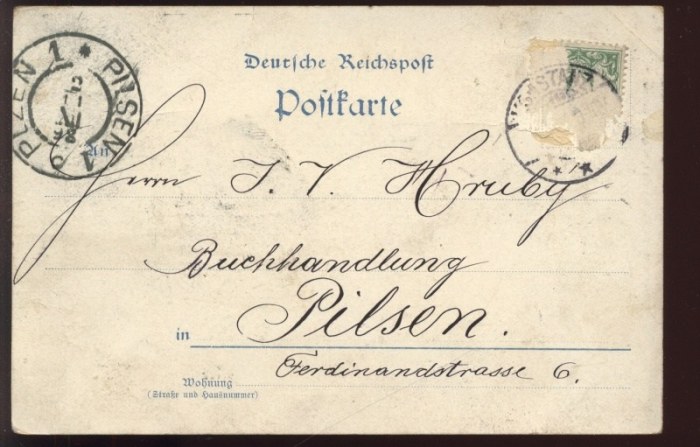 Deutsche Reichspost
Postkarte
PLZEN 1 * PILSEN 1
An
Herrn J. V. Hruby
Buchhandlung
in Pilsen.
Ferdinandstrasse 6.
Wohnung
(Straße und Hausnummer)